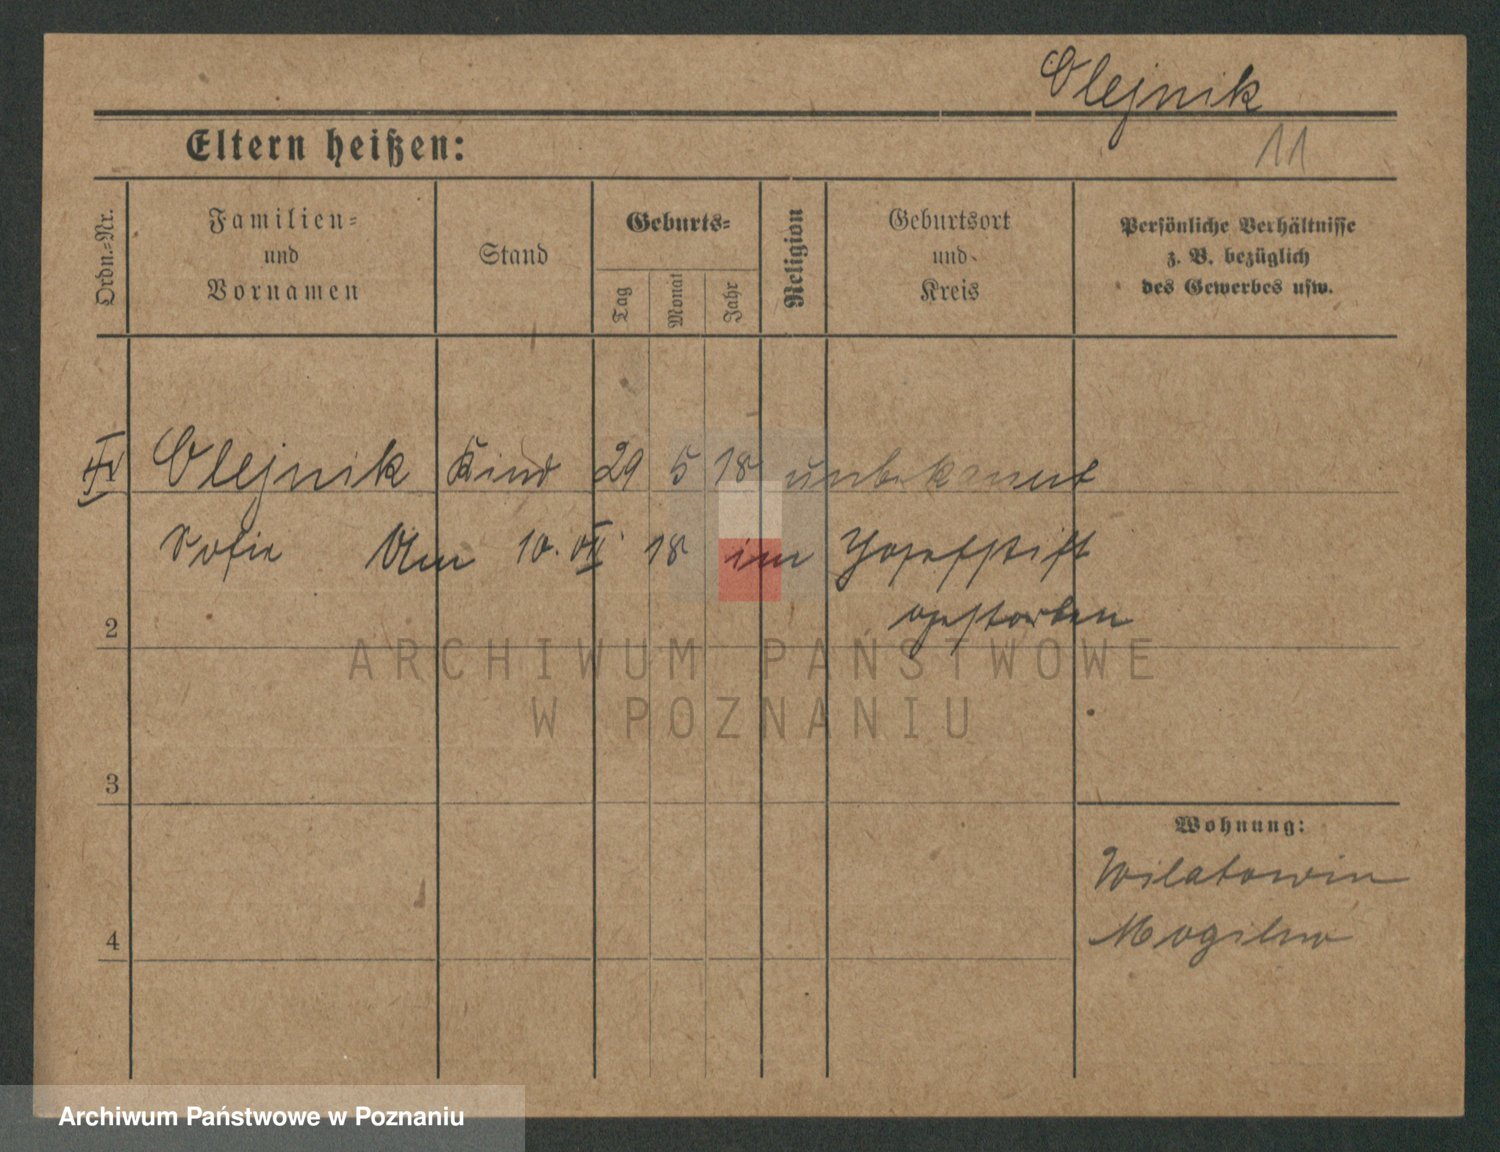 Olejnik
11
Eltern heißen:
Ordn.-Nr.
Familien-
und
Vornamen
Stand
Geburts-
Tag
Monat
Jahr
Religion
Geburtsort
und
Kreis
Persönliche Verhältnisse
z. B. bezüglich
des Gewerbes usw.
Olejnik Kind 29 5 18 unbekannt
Sofie Am 10. VII. 18 im Josefstift
gestorben
2
ARCHIWUM PAŃSTWOWE
W POZNANIU
3
Wohnung:
Wilatowin
4
Mogilno
Archiwum Państwowe w Poznaniu